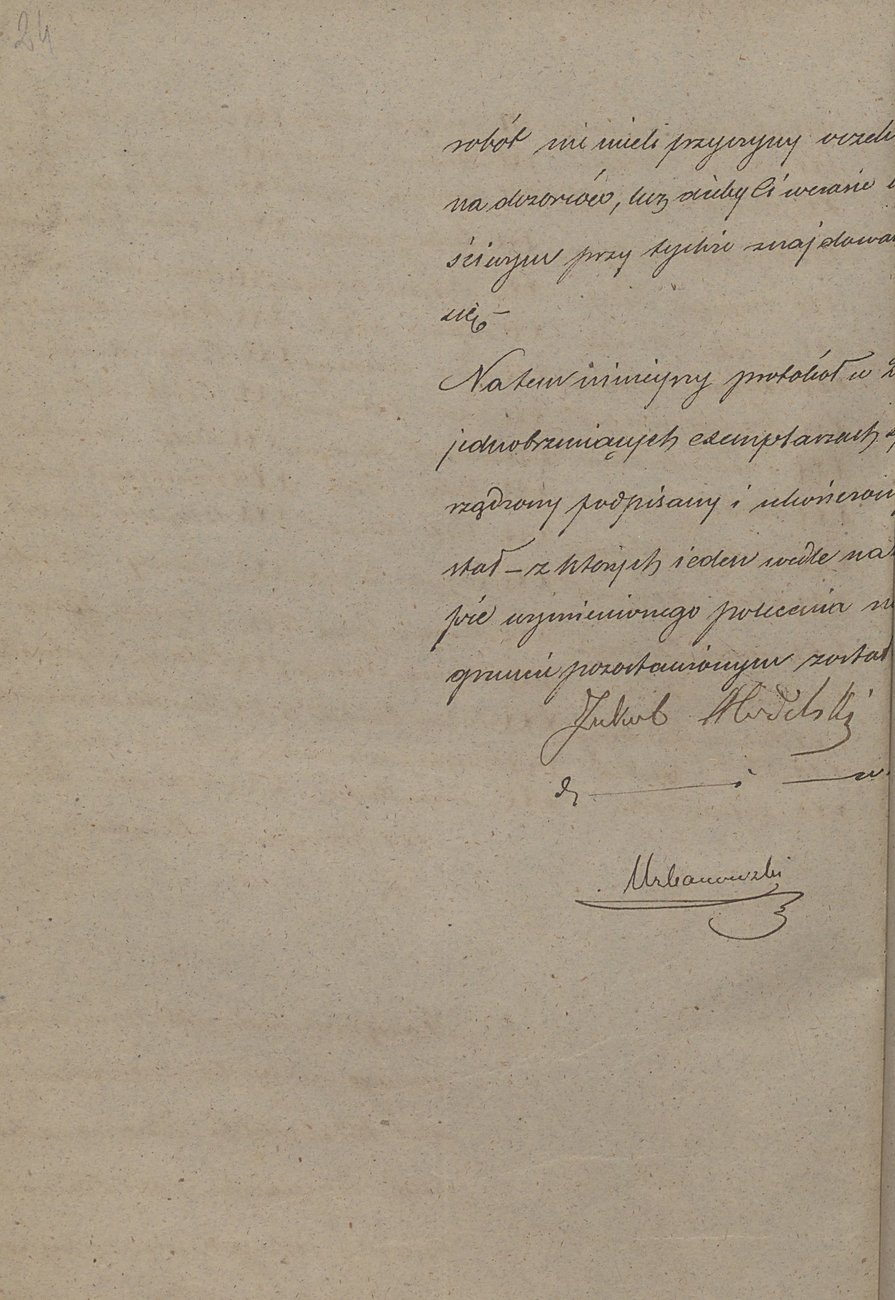 24
robót nie mieli przyczyny
na dozorców, lecz ażeby ci w czasie
ściwym przy tychże znajdowa
się –
Na tem niniejszy protokół w 2
jednobrzmiących exemplarzach
rządzony podpisany i ukończony
stał – z których ieden wedle na
pie wymienionego polecenia
gruncie pozostawionym został
Jakub Modelski
i w.
Urbanowski